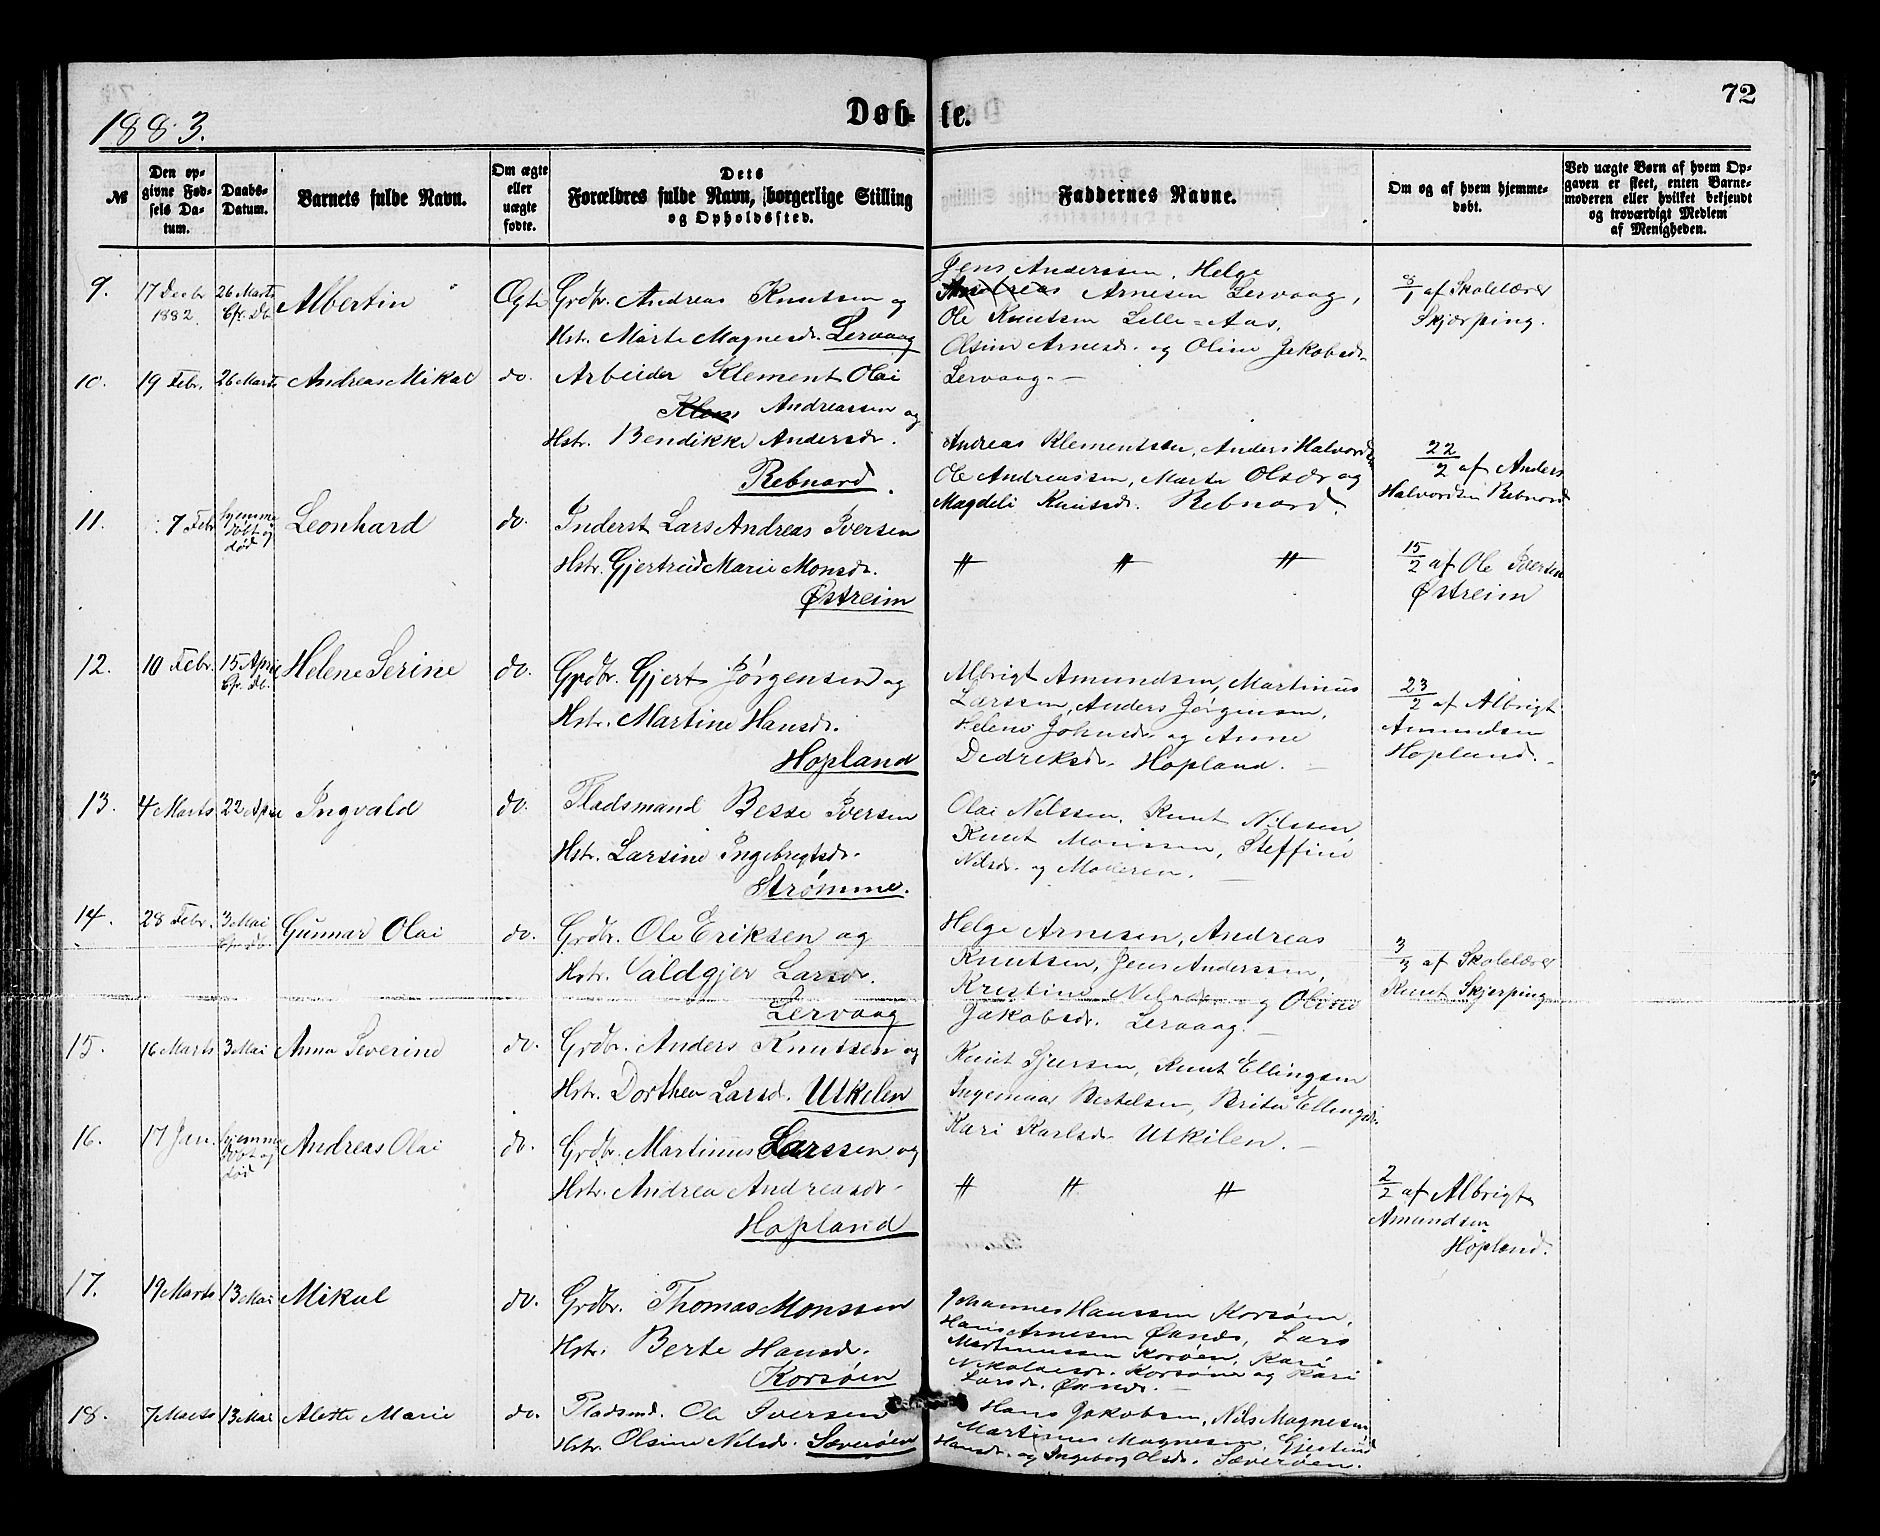 72
1883.
Døb-te.
№
Den op-
givne Fød-
sels Da-
tum.
Daabs-
Datum.
Barnets fulde Navn.
Om ægte
eller
uægte
fødte.
Dets
Forældres fulde Navn, borgerlige Stilling
og Opholdssted.
Faddernes Navne.
Om og af hvem hjemme-
døbt.
Ved uægte Børn af hvem Op-
gaven er skeet, enten Barne-
moderen eller hvilket bekjendt
og troværdigt Medlem
af Menigheden.
9. 17 Decbr 1882. 26 Marts Albertin Ægte Grdbr. Andreas Knutsen og
Hstr. Marte Magnesdr. Lervaag
Jens Anderssen, Helge
Andreas Arnesen Lervaag,
Ole Knutsen Lille-Aas,
Olsine Arnesdr. og Oline Jakobsdr.
Lervaag. —
8/1 af Skolelærer
Skjærping.
10. 19 Febr. 26 Marts Andreas Mikal do. Arbeider Klement Olai
Andreassen og
Hstr. Bendikke Andersdr.
Rebnord.
Andreas Klementsen, Anders Halvords
Ole Andreassen, Marte Olsdr og
Magdeli Knutsdr. Rebnord.
22/2 af Anders
Halvordsen Rebnord
11. 7 Febr hjemme
døbt og
død Leonhard do. Inderst Lars Andreas Iversen
Hstr. Gjertrud Marie Monsdr.
Østreim
" " "
15/2 af Ole Iversen
Østreim
12. 10 Febr. 15 April Helene Serine do. Grdbr. Gjert Jørgensen og
Hstr. Martine Hansdr.
Hopland
Albrigt Amundsen, Martinus
Larssen, Anders Jørgensen,
Helene Johnsdr. og Anne
Dedriksdr. Hopland. —
23/2 af Albrigt
Amundsen
Hopland.
13. 4 Marts 22 April Ingvald do. Pladsmand Besse Iversen
Hstr. Larsine Ingebregtsdr.
Strømme.
Olai Nilssen, Knut Nilssen,
Knut Monssen, Steffine
Nilsdr. og Moderen. —
14. 28 Febr. 3 Mai Gunnar Olai do. Grdbr. Ole Eriksen og
Hstr. Valdgjer Larsdr.
Lervaag
Helge Arnesen, Andreas
Knutsen, Jens Anderssen,
Kristine Nilsdr. og Oline
Jakobsdr. Lervaag. —
3/3 af Skolelærer
Knut Skjerping
15. 16 Marts 3 Mai Anna Severine do. Grdbr. Anders Knutsen og
Hstr. Dorthea Larsd. Utkilen
Knut Sjursen, Knut Ellingsen
Ingemar Bertelsen, Brita Ellingsdr.
Kari Karlsdr. Utkilen. —
16. 17 Jan. hjemme
døbt og
død Andreas Olai do. Grdbr. Martinus Larssen og
Hstr. Andrea Andreasdr.
Hopland
" " "
2/2 af Albrigt
Amundsen
Hopland.
17. 19 Marts 13 Mai Mikal do. Grdbr. Thomas Monssen
Hstr. Berte Hansdr.
Korsøen
Johannes Hanssen Korsøen,
Hans Arnesen Øxnds, Lars
Martinussen Korsøen, Kari
Nikolaisdr. Korsøen og Kari
Larsdr. —
18. 7 Marts 13 Mai Alette Marie do. Pladsmd. Ole Iversen
Hstr. Olsine Nilsdr. Sæverøen
Hans Jakobsen, Nils Magnesen
Martinus Magnesen, Gjertrud
Hansdr. og Ingeborg Olsdr. Sæverøen.